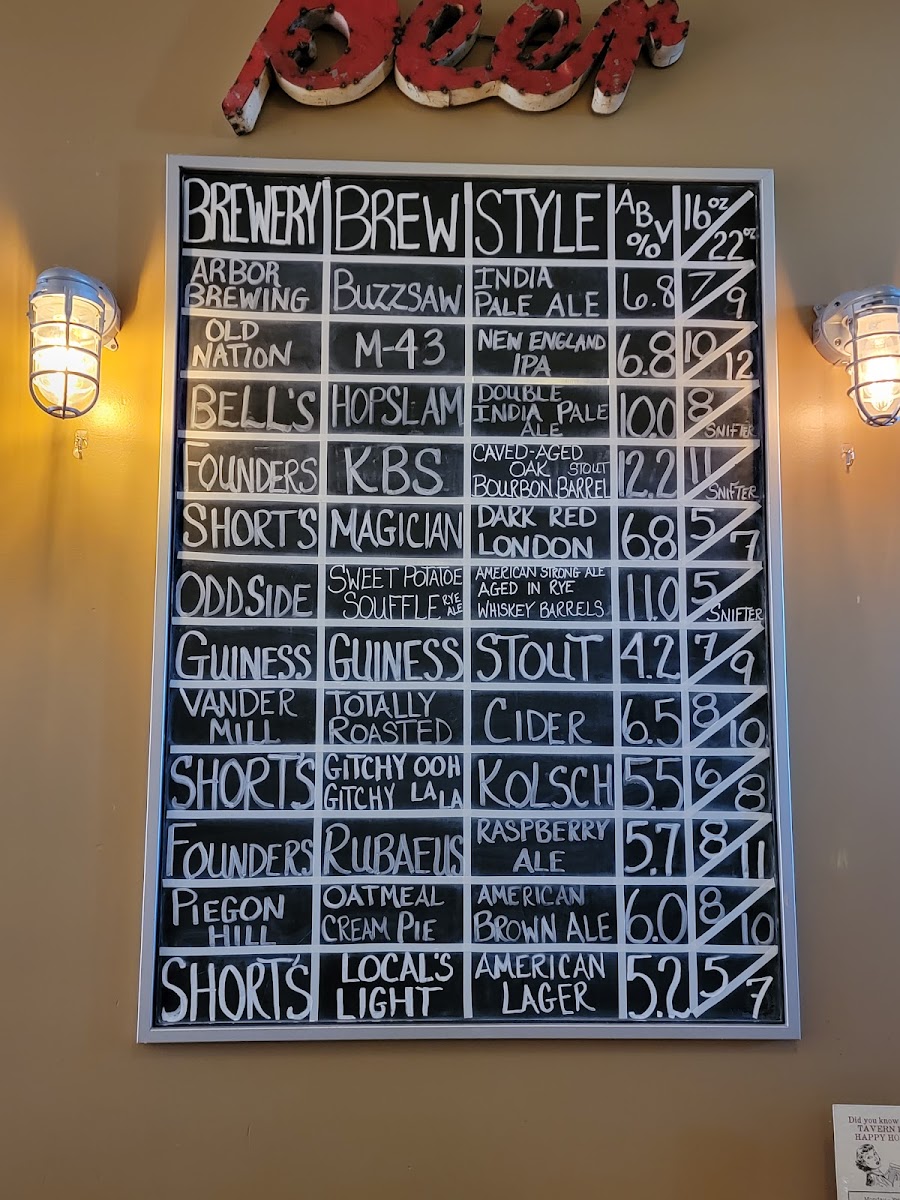 Beer
BREWERY BREW STYLE ABV % 16oz/22oz
ARBOR BREWING BUZZSAW INDIA PALE ALE 6.8 7/9
OLD NATION M-43 NEW ENGLAND IPA 6.8 10/12
BELL'S HOPSLAM DOUBLE INDIA PALE ALE 10.0 8/SNIFTER
FOUNDERS KBS CAVED-AGED OAK STOUT BOURBON BARREL 12.2 11/SNIFTER
SHORT'S MAGICIAN DARK RED LONDON 6.8 5/7
ODDSIDE SWEET POTATOE SOUFFLE RYE ALE AMERICAN STRONG ALE AGED IN RYE WHISKEY BARRELS 11.0 5/SNIFTER
GUINESS GUINESS STOUT 4.2 7/9
VANDER MILL TOTALLY ROASTED CIDER 6.5 8/10
SHORT'S GITCHY OOH GITCHY LA LA KOLSCH 5.5 6/8
FOUNDERS RUBAEUS RASPBERRY ALE 5.7 8/11
PIEGON HILL OATMEAL CREAM PIE AMERICAN BROWN ALE 6.0 8/10
SHORT'S LOCAL'S LIGHT AMERICAN LAGER 5.2 5/7
Did you know
TAVERN
HAPPY HO